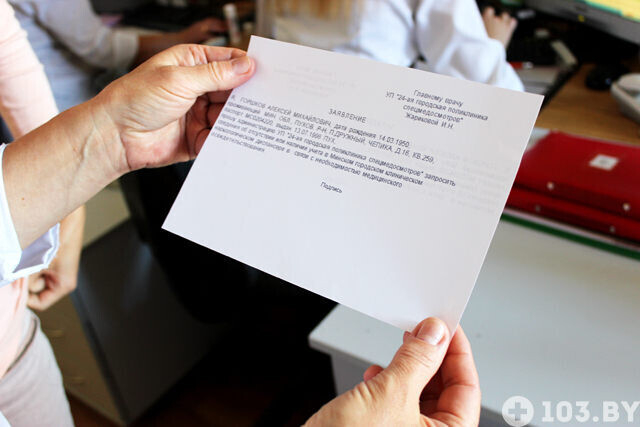 Главному врачу
УП "24-ая городская поликлиника
спецмедосмотров"
Жариковой И.Н.
ЗАЯВЛЕНИЕ
Я, ГОРШКОВ АЛЕКСЕЙ МИХАЙЛОВИЧ, дата рождения 14.03.1950,
проживающий МИН. ОБЛ. ПУХОВ. Р-Н, П.ДРУЖНЫЙ, ЧЕПИКА, Д.16, КВ.259,
паспорт выдан 13.07.1666 ПУХ
прошу администрацию УП "24-ая городская поликлиника спецмедосмотров" запросить
сведения об отсутствии или наличии учета в Минском городском клиническом
наркологическом диспансере в связи с необходимостью медицинского
освидетельствования.
Подпись
103.BY